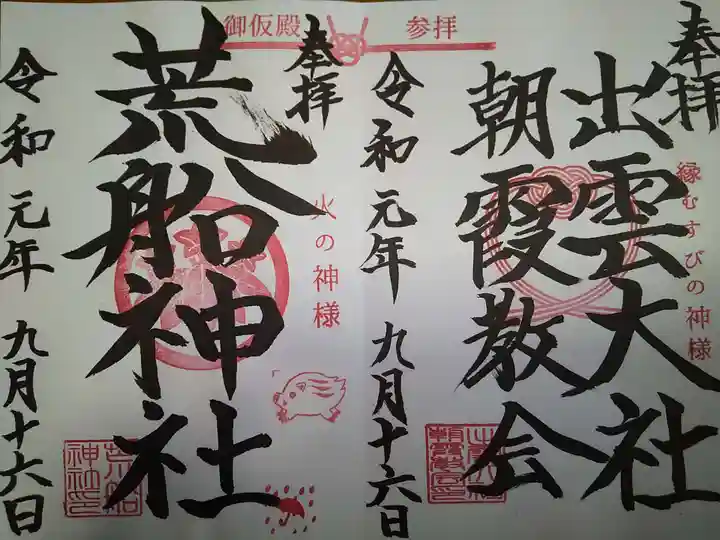 奉拝
縁むすびの神様
出雲大社
朝霞教会
令和元年九月十六日
御仮殿 参拝
奉拝
火の神様
荒船神社
荒船
神社印
令和元年九月十六日